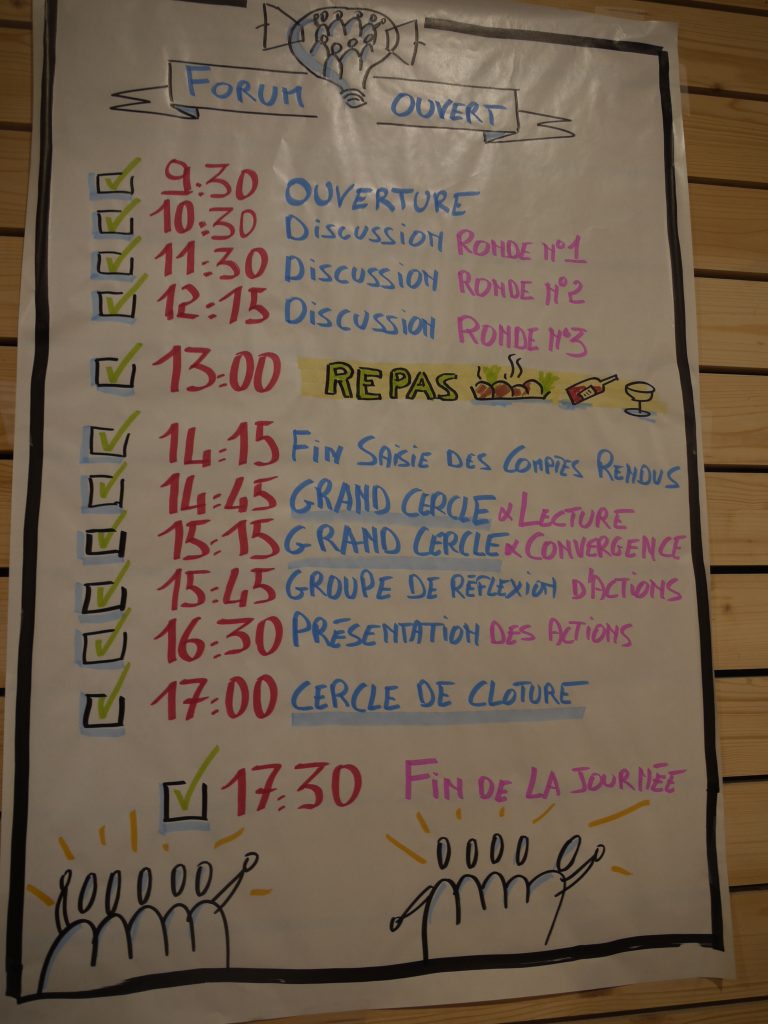 FORUM OUVERT
9:30 OUVERTURE
10:30 DISCUSSION RONDE N°1
11:30 DISCUSSION RONDE N°2
12:15 DISCUSSION RONDE N°3
13:00 REPAS
14:15 FIN SAISIE DES COMPTES RENDUS
14:45 GRAND CERCLE & LECTURE
15:15 GRAND CERCLE & CONVERGENCE
15:45 GROUPE DE RÉFLEXION D'ACTIONS
16:30 PRÉSENTATION DES ACTIONS
17:00 CERCLE DE CLOTURE
17:30 FIN DE LA JOURNÉE